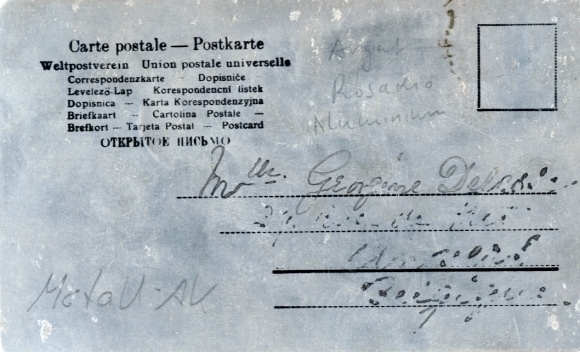 Carte postale — Postkarte
Weltpostverein Union postale universelle
Correspondenzkarte – Dopisnice
Levelező-Lap Korespondencní listek
Dopisnica – Karta Korespondenzyjna
Briefkaart – Cartolina Postale –
Brefkort – Tarjeta Postal – Postcard
ОТКРЫТОЕ ПИСЬМО
Rosario
Aluminium
Mlle. Georgine
Metall-AK